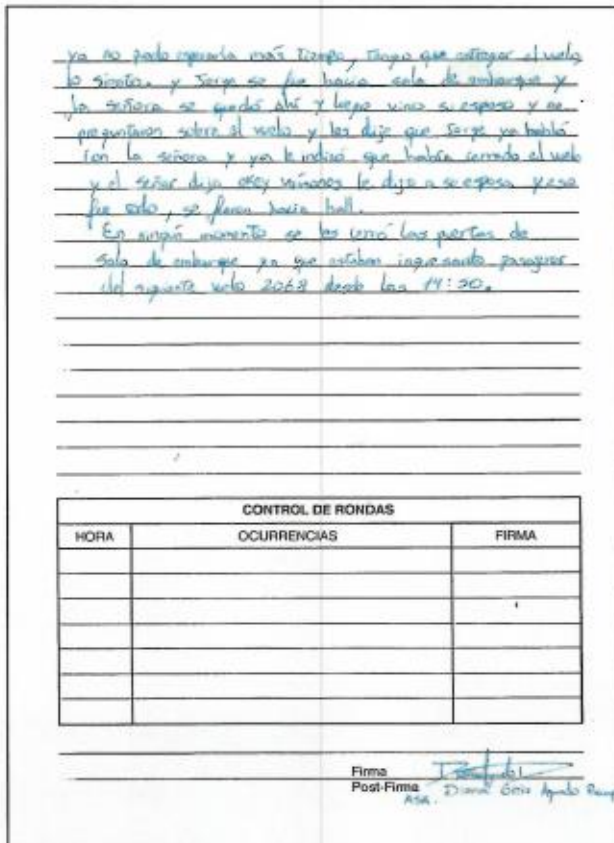 ya no puedo esperarla más tiempo, tengo que entregar el vuelo,
lo siento. y Jorge se fue hacia sala de embarque y
la señora se quedó ahí y luego vino su esposo y me
preguntaron sobre el vuelo y les dije que Jorge ya habló
con la señora y ya le indicó que había cerrado el vuelo
y el señor dijo okey vámonos le dijo a su esposa y eso
fue todo, se fueron hacia hall.
En ningún momento se les cerró las puertas de
sala de embarque ya que estaban ingresando pasajeros
del siguiente vuelo 2068 desde las
CONTROL DE RONDAS
HORA OCURRENCIAS FIRMA
Firma
Post-Firma
ASA. Diana